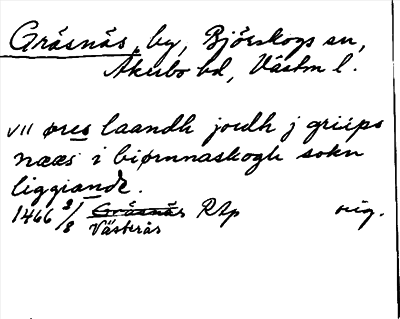 Gräsnäs, by, Björskogs sn,
Åkerbo hd, Västm l.
VII øres laandh jordh j griips
nææs i biørnnaskogh sokn
liggiande.
1466 3/8 Gräsnäs RAp orig.
Västerås